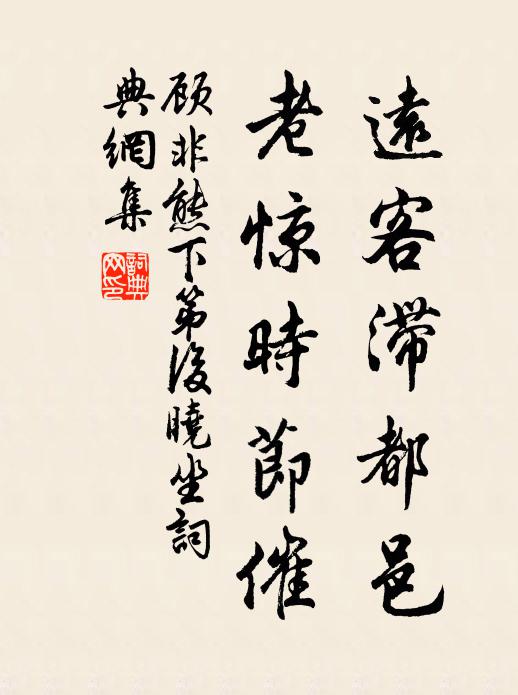 遠客滯都邑
老惊時節催
顾非熊下第後曉坐詞
典網集
詞典網印